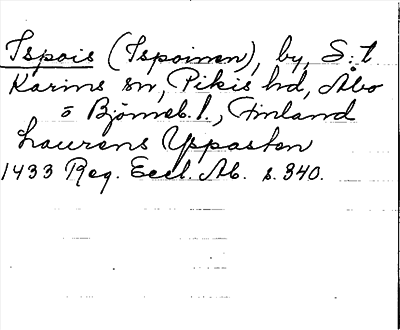 Ispois (Ispoinen), by, S:t
Karins sn, Pikis hd, Åbo
o Björneb. l., Finland
Laurens Yppasten
1433 Reg. Eccl. Ab. s. 340.